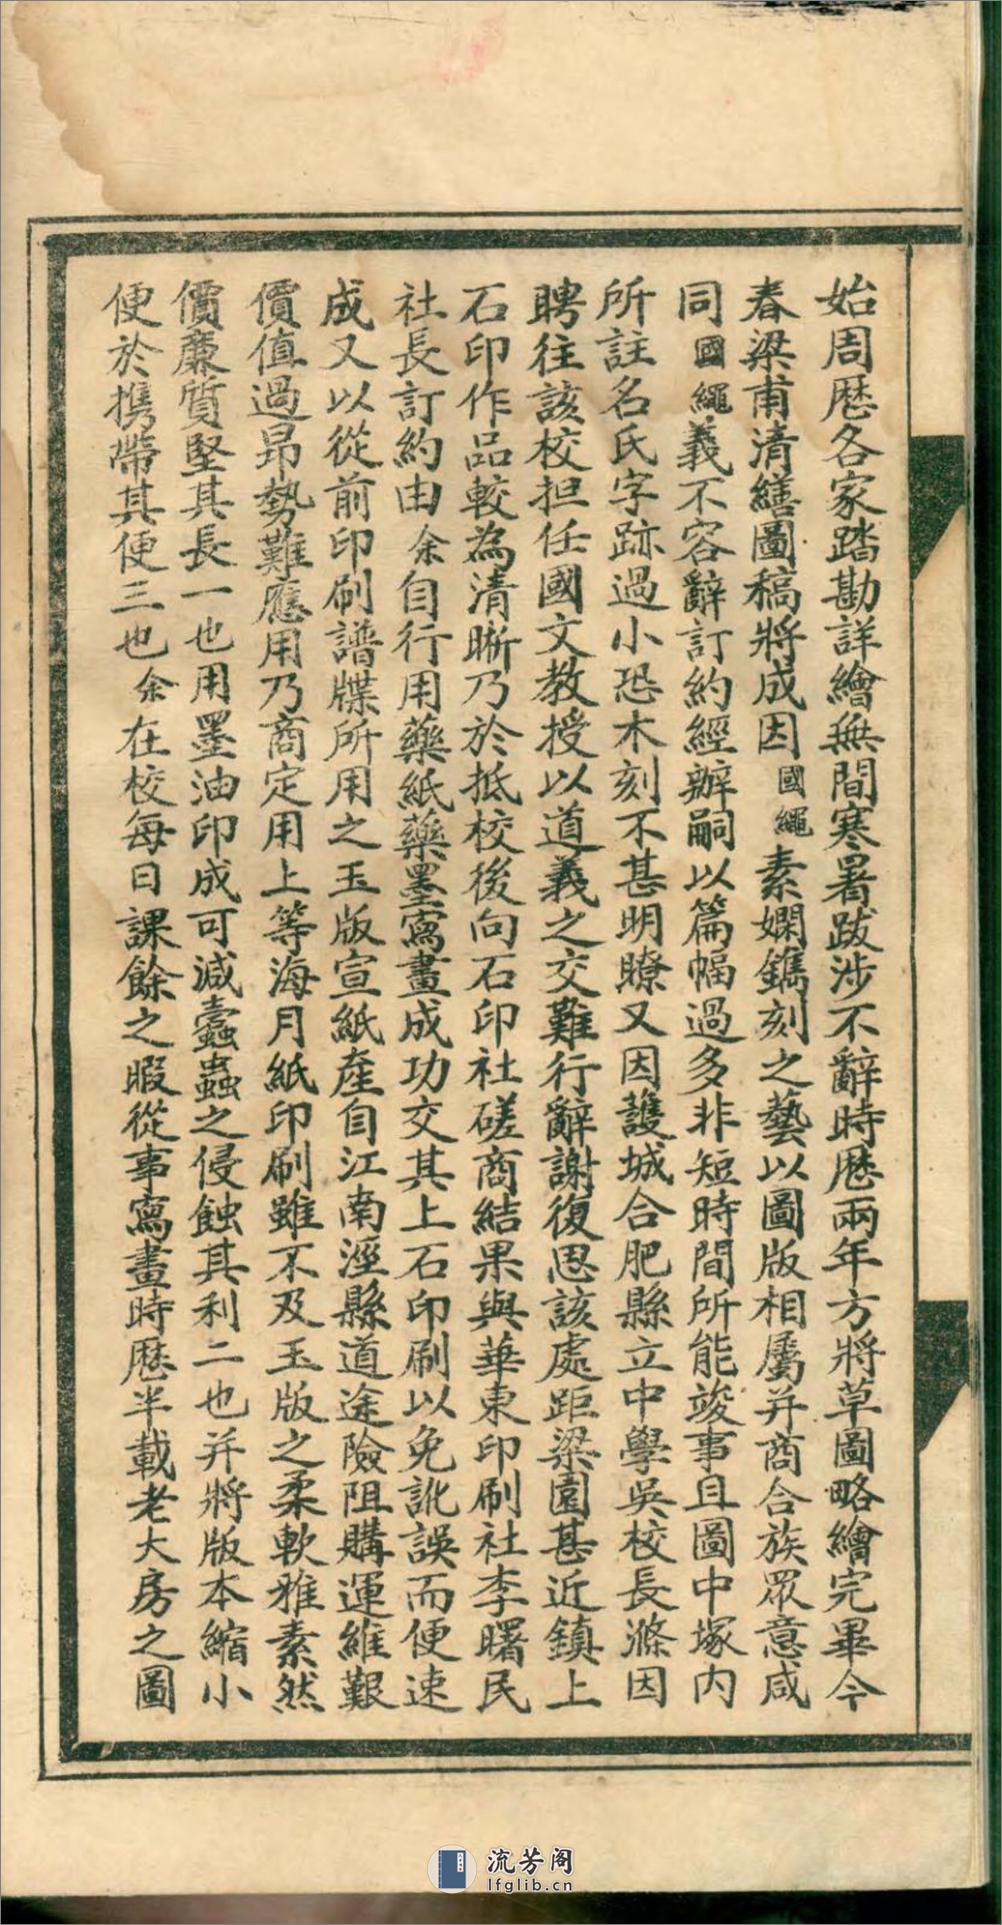 始周歷各家踏勘詳繪無間寒暑跋涉不辭時歷兩年方將草圖略繪完畢今
春梁甫清繕圖稿將成因國繩素嫻鐫刻之藝以圖版相屬并商合族眾意咸
同國繩義不容辭訂約經辦嗣以篇幅過多非短時間所能竣事且圖中塚內
所註名氏字跡過小恐木刻不甚明瞭又因護城合肥縣立中學吳校長滌因
聘往該校担任國文教授以道義之交難行辭謝復思該處距梁園甚近鎮上
石印作品較為清晰乃於抵校後向石印社磋商結果與華東印刷社李曙民
社長訂約由余自行用藥紙藥墨寫畫成功交其上石印刷以免訛誤而便速
成又以從前印刷譜牒所用之玉版宣紙產自江南涇縣道途險阻購運維艱
價值過昻勢難應用乃商定用上等海月紙印刷雖不及玉版之柔軟雅素然
價廉質堅其長一也用墨油印成可減蠹蟲之侵蝕其利二也并將版本縮小
便於携帶其便三也余在校每日課餘之暇從事寫畫時歷半載老大房之圖
流芳阁
lfglib.cn